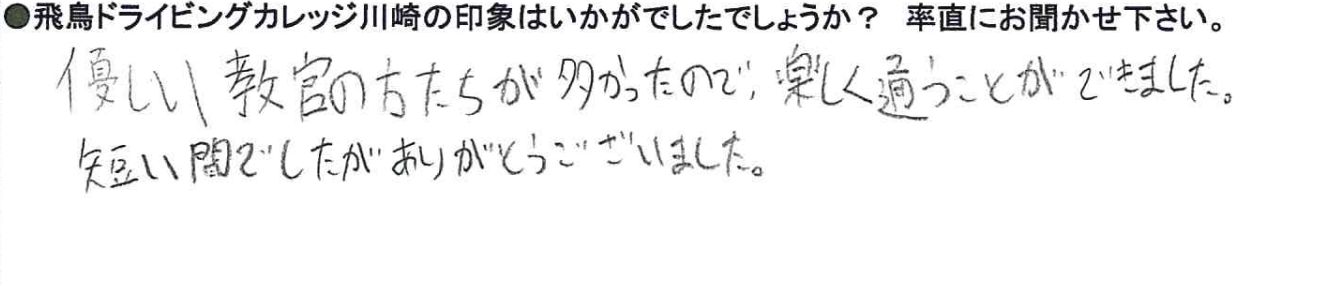 ●飛鳥ドライビングカレッジ川崎の印象はいかがでしたでしょうか？ 率直にお聞かせ下さい。
優しい教官の方たちが多かったので、楽しく通うことができました。
短い間でしたがありがとうございました。